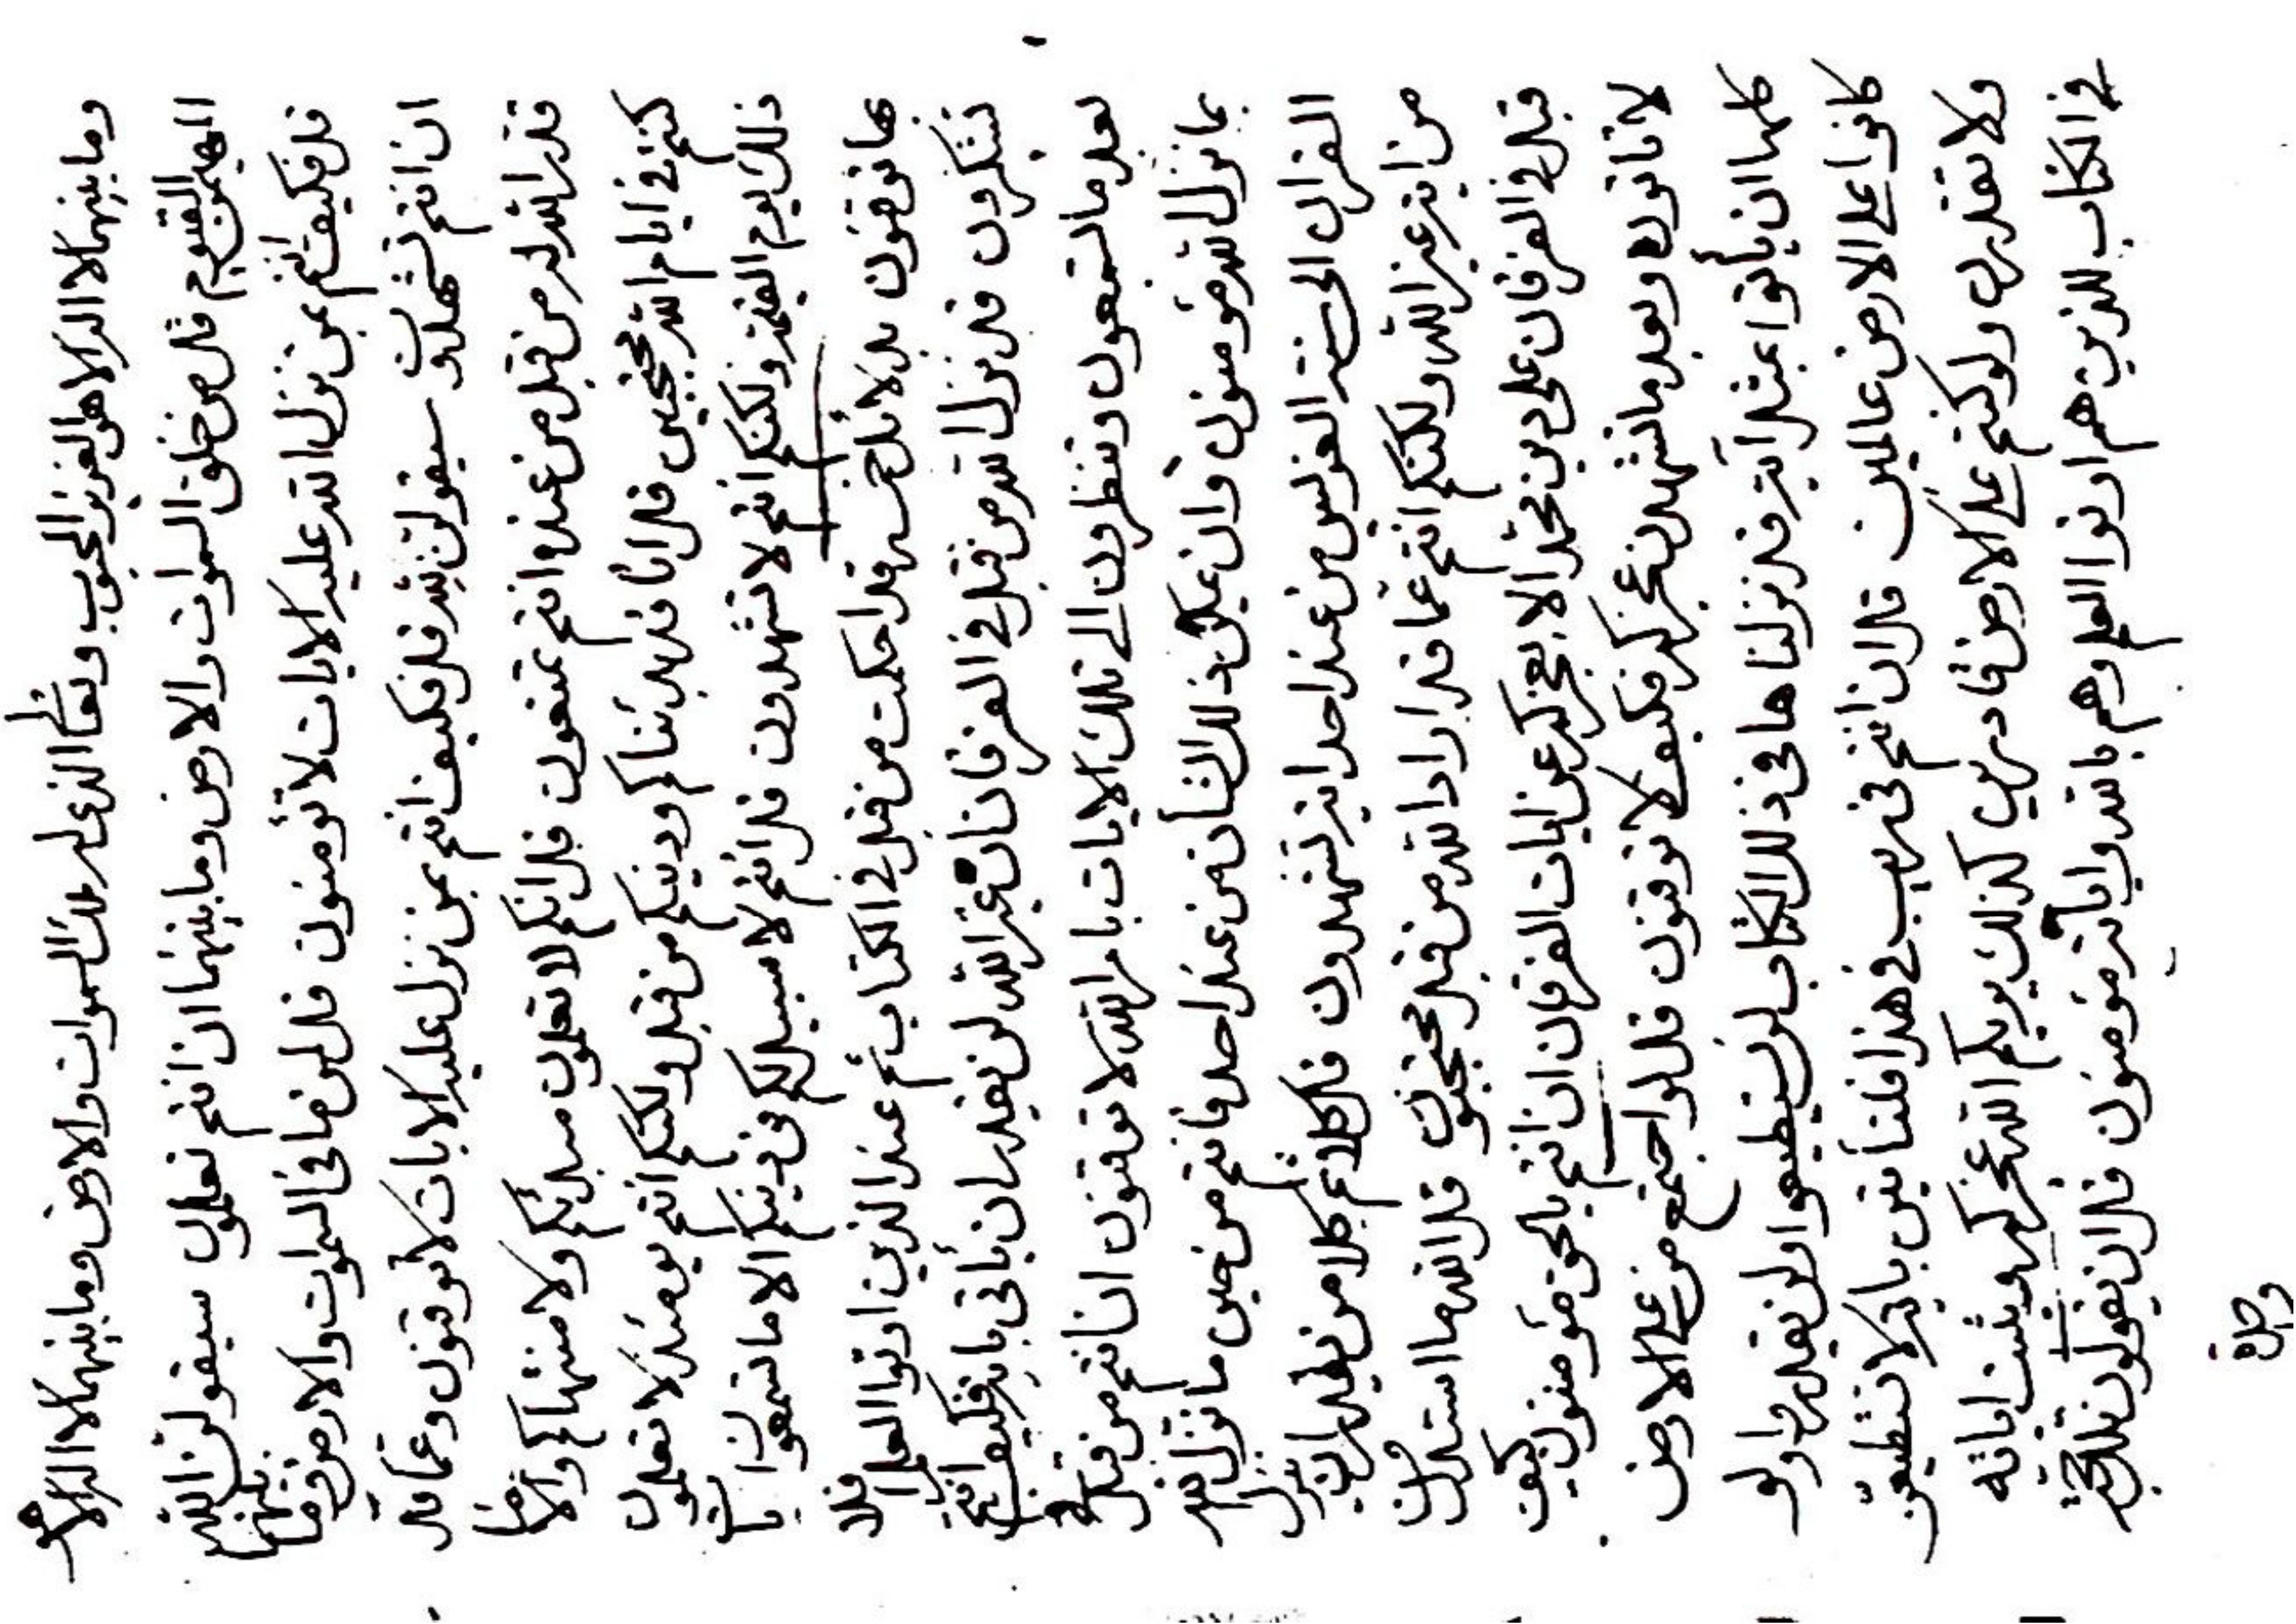 وما بينهما لا اله الا هو العزيز المحبوب وتعالى الذي له ملك السموات والارض وما بينهما لا اله الا هو
المهيمن القيوم قل من خلق السموات والارض وما بينهما ان انتم تعلمون سيقولن الله
قل فكيف انتم بمن نزل الله عليه الايات لا تؤمنون قل لمن ما في السموات والارض وما بينهما
ان انتم تشهدون سيقولن لله قل فكيف انتم بمن نزل عليه الايات لا توقنون وعما قد
قدر الله له من قبل من عنده انتم تمنعون قل انكم لا تعلمون مبدئكم ولا منتهاكم والا ما
كنتم في ايام الله محتجبين قل انا قد بدئناكم ودينكم من قبل ولكنكم انتم يومئذ لا تعلمون
ذلك يوم القيمة ولكنكم انتم لا تشهدون قل انتم لا سبيل لكم في دينكم الا ما
بها توقنون بدلائل قد احكمت من قبل في الكتاب ثم عند الذين اوتوا العلم قل
تتذكرون قد نزل الله من قبل في الفرقان ان غير الله لن يقدر ان يأتي بايه فكيف انتم
بعد ما تستمعون وتنظرون الى تلك الايات بامر الله لا توقنون ان انتم من قبل
بما نزل الله مؤمنون وان يمكن ذلك الشأن من عند احد فانتم من حين ما نزل الله
القران الى من عند احد ايه تشهدون قل كلا ثم كلا من يقدر ان ينزل
من ايه غير الله ولكنكم انتم عما قد اراد الله من قبل محتجبون قل الله ما استدل
قبل في الفرقان على دين محمد الا بعجز كل عن ايات الفرقان ان انتم بالحق مؤمنون كيف
لا تاتون وبعد ما تشهدن عجز كل فكيف لا توقنون قل لو اجتمع من على الارض
كلها ان يأتوا بمثل آيه قد نزلناها في ذلك الكتاب لن يستطيعوا ولن يقدروا ولو
كانوا على الارض عالمين قل ان انتم في ريب في هذا فلتأتين بايه لا تستطيعن
ولا تقدرن ولو كنتم على الارض قادرين كذلك يريكم الله عجز كل ويثبت اياته
في الكتاب للذين هم اوتوا العلم وهم بالله واياته مؤمنون قل ان يقولون تلك حجة